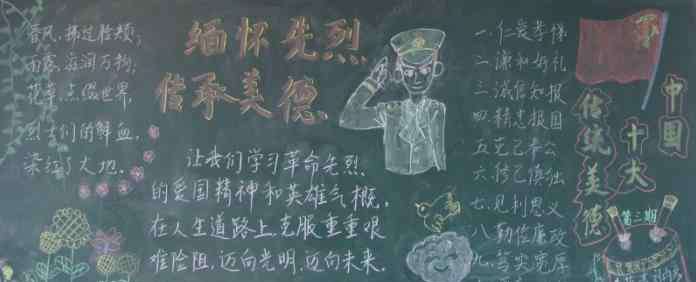 春风,拂过脸颊;
雨露,滋润万物;
花草,点缀世界,
烈士们的鲜血,
染红了大地.
缅怀先烈
传承美德
让我们学习革命先烈
的爱国精神和英雄气概,
在人生道路上,克服重重艰
难险阻,迈向光明,迈向未来.
一.仁爱孝悌
二.谦和好礼
三.诚信知报
四.精忠报国
五.克己奉公
六.修己慎独
七.见利思义
八.勤俭廉政
九.笃实宽厚
中国
十大
传统美德
第三期